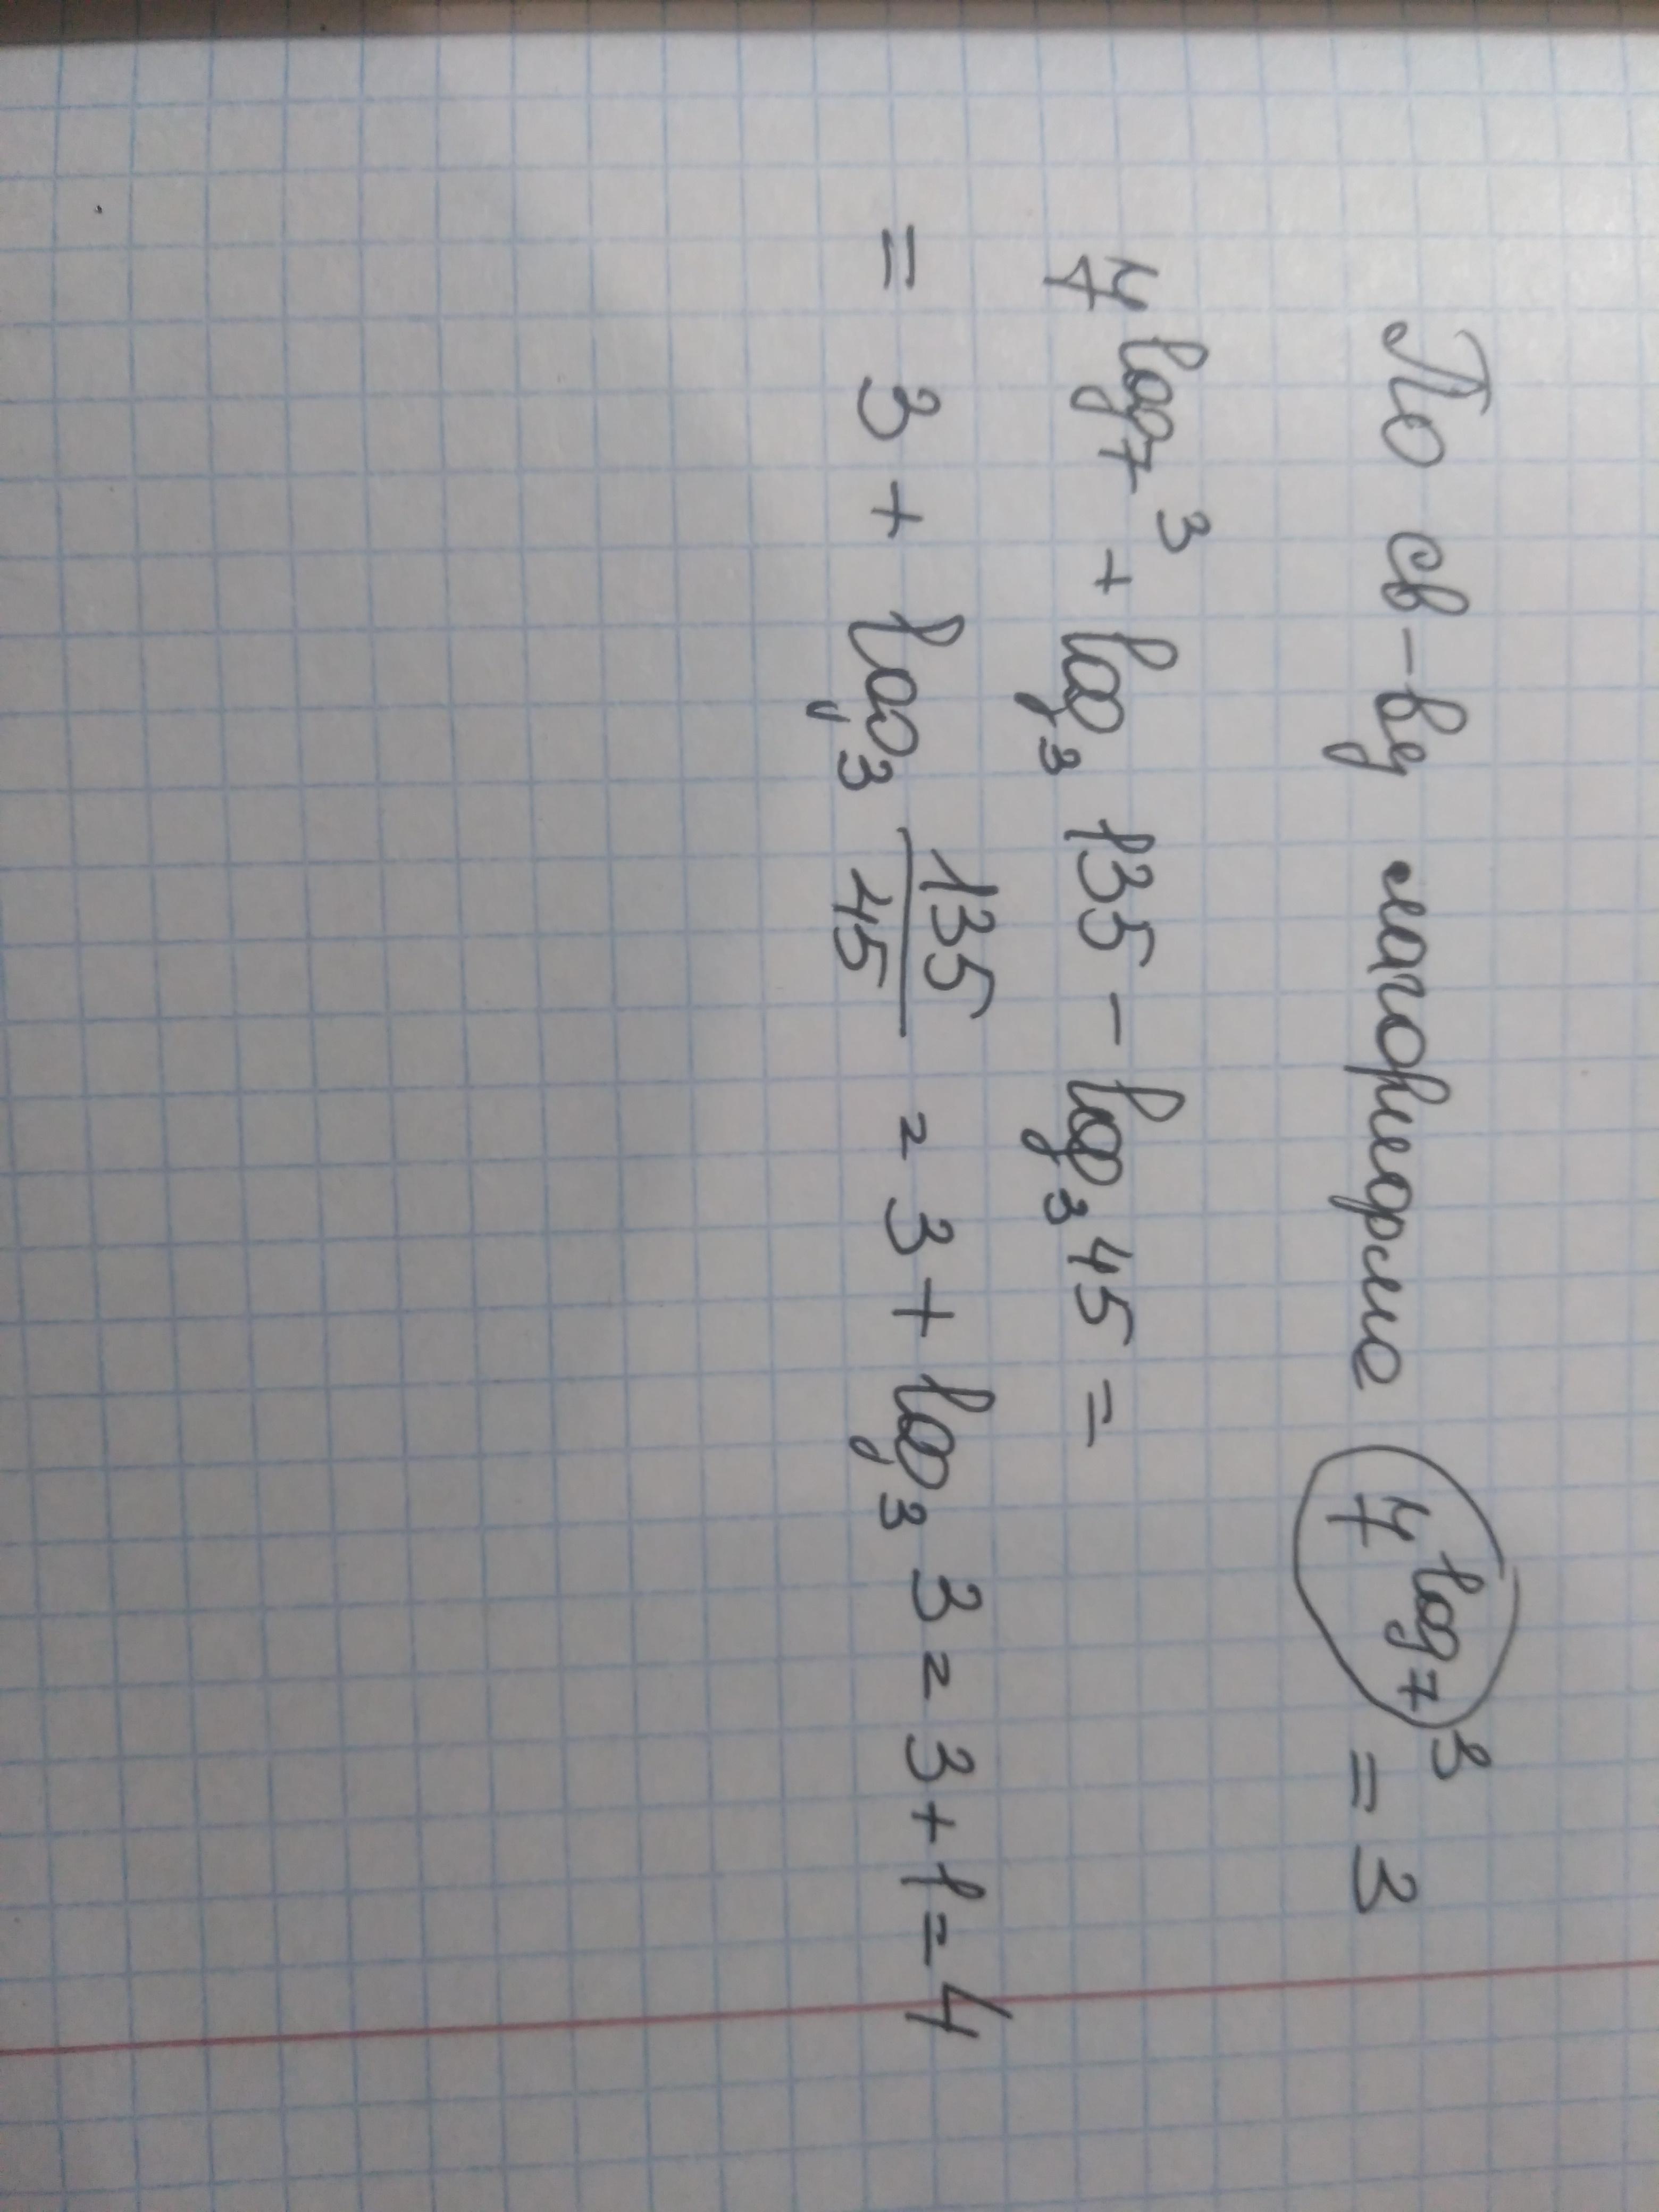 По св-ву логорифме 7^log₇3 = 3
7^log₇3 + log₃ 135 - log₃ 45 =
= 3 + log₃ 135/45 = 3 + log₃ 3 = 3 + 1 = 4